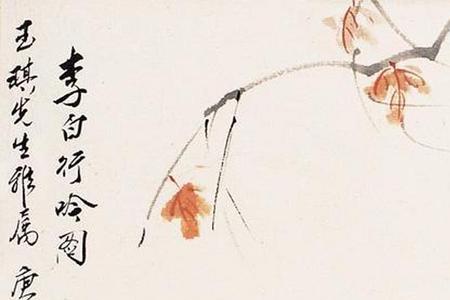 李白行吟图
玉琪先生雅属 庚